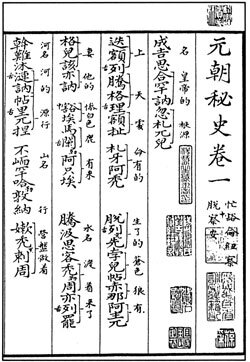 元朝秘史卷一
忙豁侖紐察
脫察安
名 皇帝的 根源
成吉思合罕訥忽札兀兒
上 天 處 命有的 生了的 蒼色 狼 有
迭額列騰格理額扯 札牙阿禿 脫列克先孛兒帖赤那阿主兀
妻 他的 慘白色 鹿 有來 水名 渡着 來了
格兒該亦訥 豁埃馬闌勒阿只埃 騰汲思客禿勒周亦列罷
河名 河的 源行 山名 行 營盤做着
斡難沐漣訥帖里兀捏 不峏罕哈勒敦納 嫩禿黑剌周